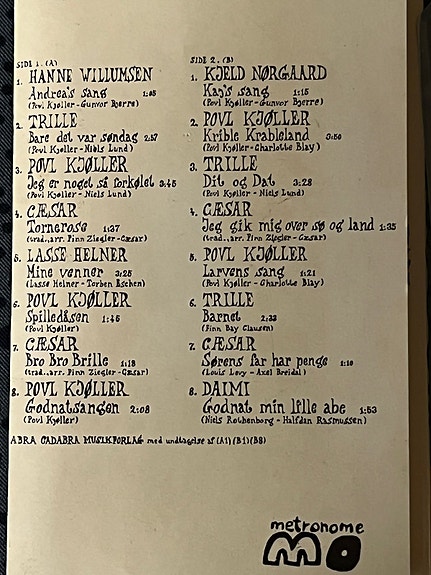 SIDE 1. (A)
1. HANNE WILLUMSEN
Andrea's sang 1:05
(Povl Kjøller - Gunvor Bjerre)
2. TRILLE
Bare det var søndag 2:57
(Povl Kjøller - Niels Lund)
3. POVL KJØLLER
Jeg er noget så forkølet 3:45
(Povl Kjøller - Niels Lund)
4. CÆSAR
Tornerose 1:37
(trad., arr. Finn Ziegler - Cæsar)
5. LASSE HELNER
Mine venner 3:25
(Lasse Helner - Torben Eschen)
6. POVL KJØLLER
Spilledåsen 1:45
(Povl Kjøller)
7. CÆSAR
Bro Bro Brille 1:18
(trad., arr. Finn Ziegler - Cæsar)
8. POVL KJØLLER
Godnatsangen 2:08
(Povl Kjøller)
SIDE 2. (B)
1. KJELD NØRGAARD
Kaj's sang 1:15
(Povl Kjøller - Gunvor Bjerre)
2. POVL KJØLLER
Krible Krableland 3:50
(Povl Kjøller - Charlotte Blay)
3. TRILLE
Dit og Dat 3:28
(Povl Kjøller - Niels Lund)
4. CÆSAR
Jeg gik mig over sø og land 1:35
(trad., arr. Finn Ziegler - Cæsar)
5. POVL KJØLLER
Larvens sang 1:21
(Povl Kjøller - Charlotte Blay)
6. TRILLE
Barnet 2:33
(Finn Bay Clausen)
7. CÆSAR
Sørens far har penge 1:10
(Louis Levy - Axel Breidal)
8. DAIMI
Godnat min lille abe 1:53
(Niels Rothenborg - Halfdan Rasmussen)
ABRA CADABRA MUSIKFORLAG med undtagelse af (A1) (B1) (B8)
metronome
MO